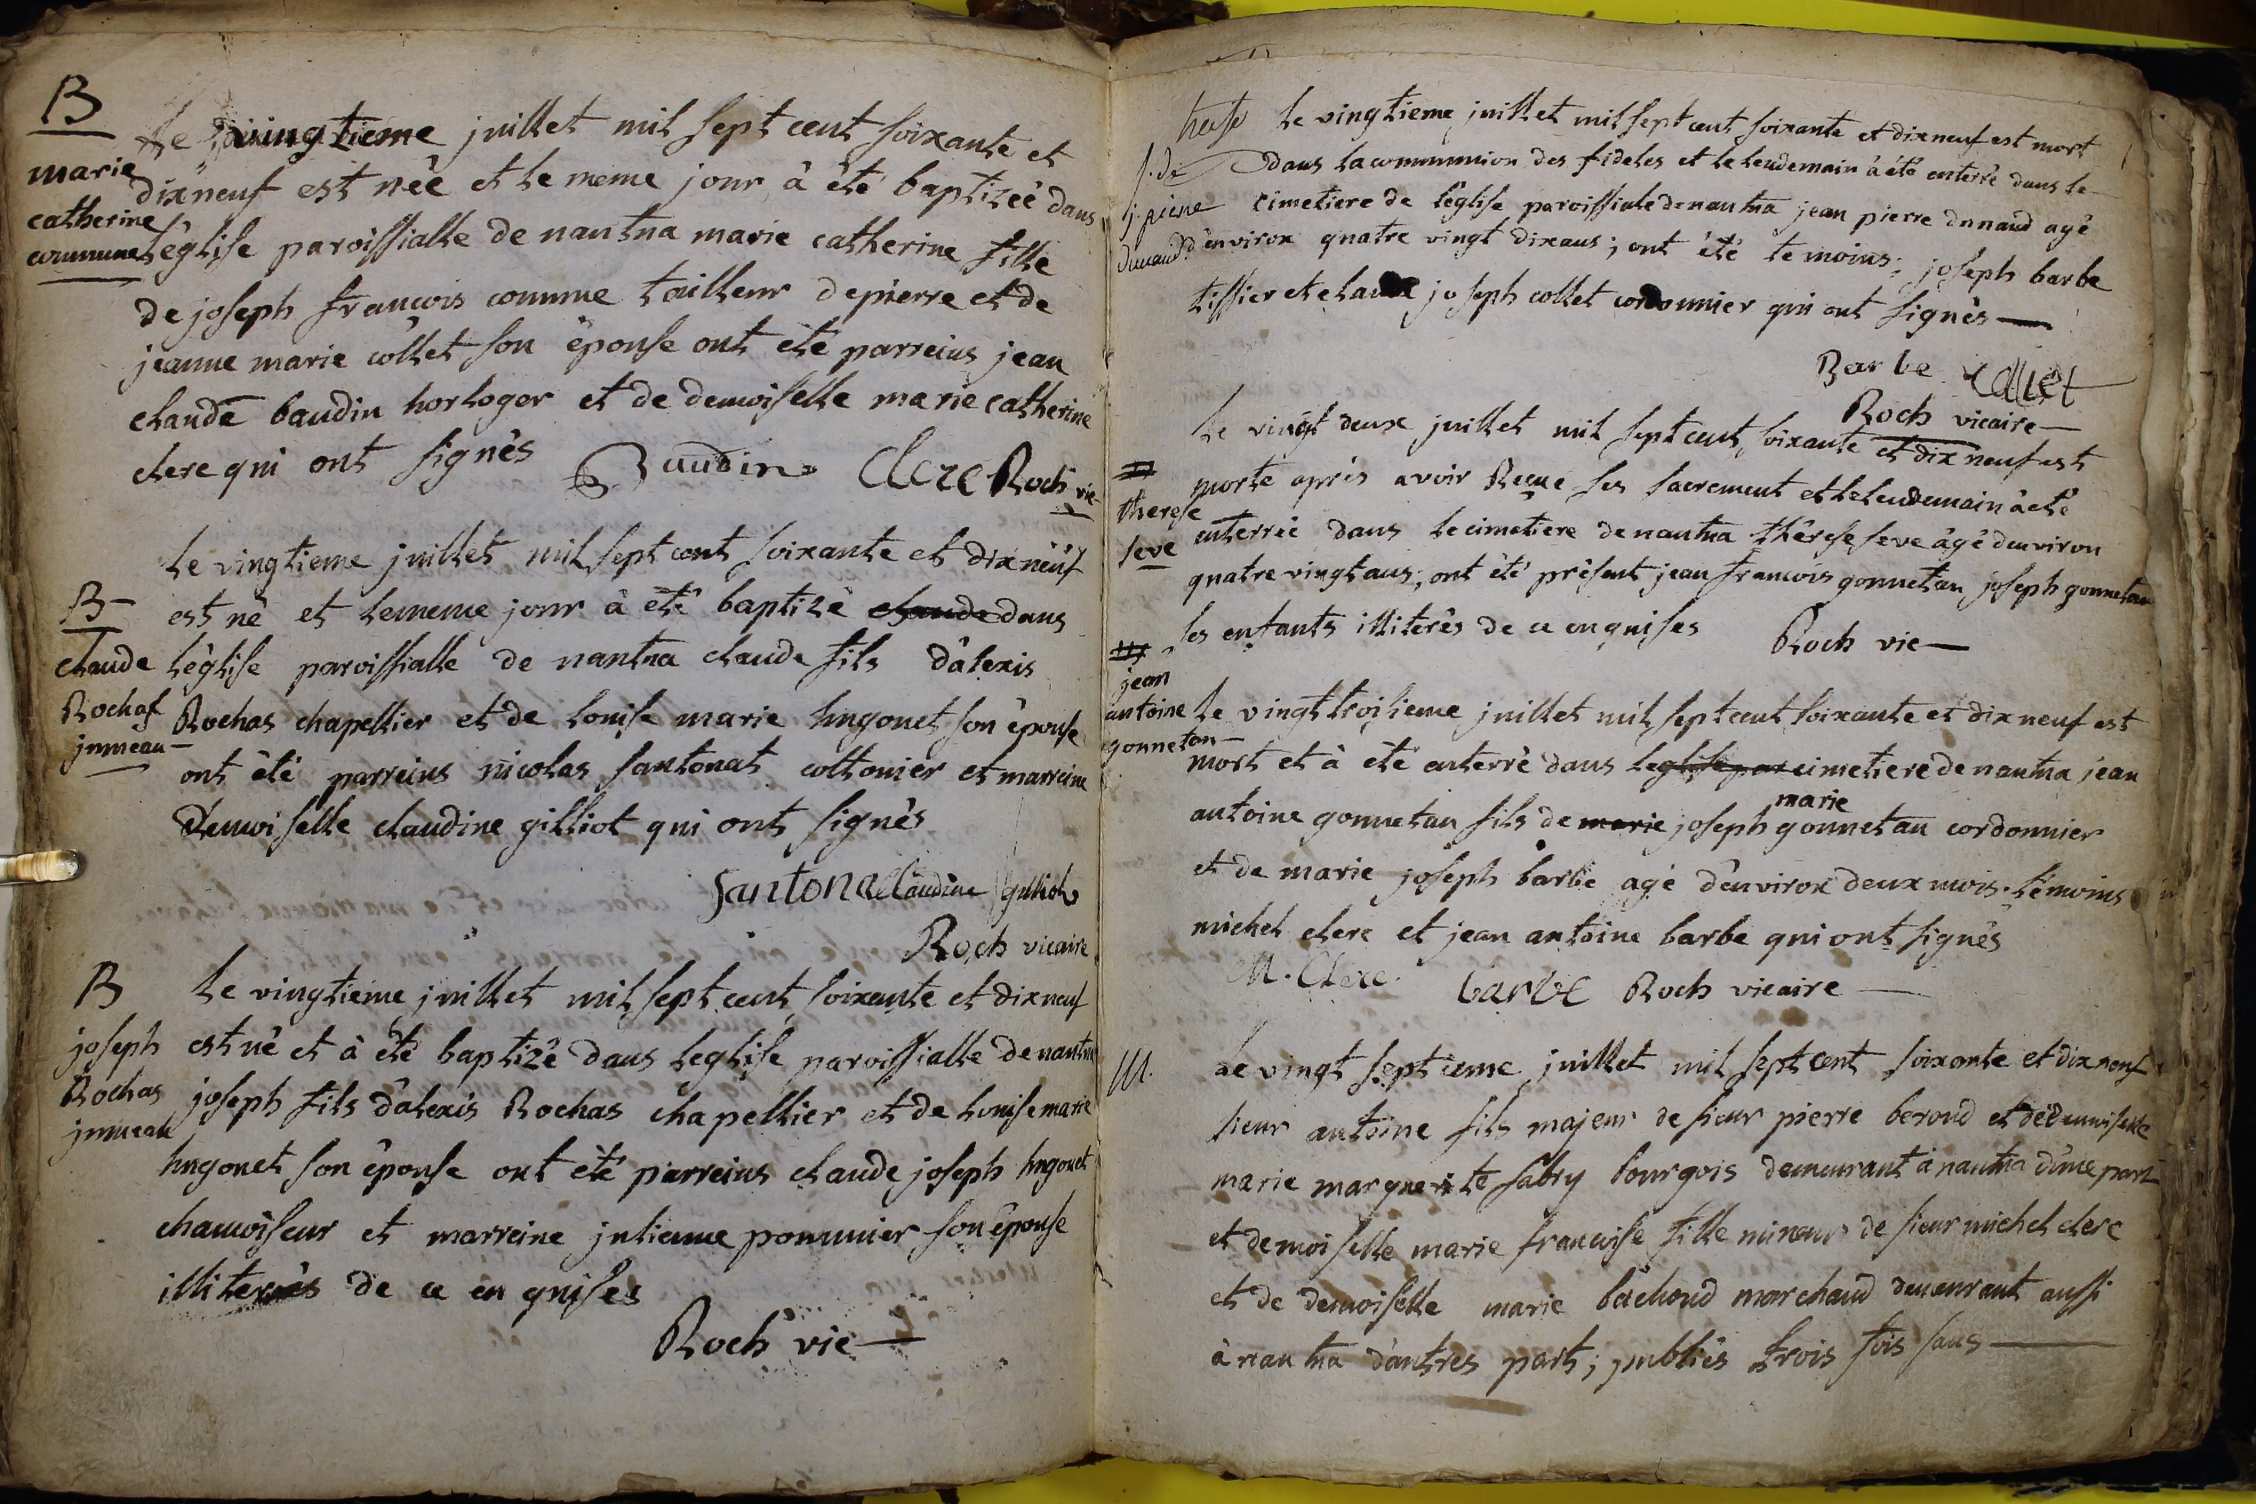 B
marie
catherine
comune
Le vingtieme juillet mil sept cent soixante et
dixneuf est née et le meme jour à été baptizeé dans
l'église paroissialle de nantua marie catherine fille
de joseph françois comune tailleur de pierre et de
jeanne marie collet son épouse ont été parreins jean
claude baudin horloger et de demoiselle marie catherine
clerc qui ont signés Baudin Clerc Roch vic
B
claude
Rochas
jumeau
le vingtieme juillet mil sept cent soixante et dix neuf
est né et le meme jour à été baptizé claude dans
l'église paroissialle de nantua claude fils d'alexis
Rochas chapellier et de louise marie hugonet son épouse
ont été parreins nicolas santonat cottonier et marreine
demoiselle claudine gilliot qui ont signés
Santona Claudine gilliot
Roch vicaire
B
joseph
Rochas
jumeau
le vingtieme juillet mil sept cent soixante et dixneuf
est né et à été baptizé dans leglise paroissialle de nantua
joseph fils d'alexis Rochas chapellier et de louise marie
hugonet son épouse ont été parreins claude joseph hugonet
chamoiseur et marreine julienne pommier son épouse
illiterés de ce enquises
Roch vic
j. pierre
dunand
le vingtieme juillet mil sept cent soixante et dixneuf est mort
dans la communion des fideles et le lendemain à été enterré dans le
cimetiere de l'église paroissiale de nantua jean pierre dunand agé
d'environ quatre vingt dix ans; ont été temoins; joseph barbe
tissier et claude joseph collet cordonnier qui ont signés
Barbe Collet
Roch vicaire
therese
seve
le vingt deux juillet mil sept cent soixante et dix neuf est
morte aprés avoir Reçue ses sacrement et le lendemain à été
enterrée dans le cimetiere de nantua thérese seve âgé denviron
quatre vingt ans; ont été présent jean francois gonnetan joseph gonnetan
ses enfants illiterés de ce enquises Roch vic
jean
antoine
gonnetan
le vingt troisieme juillet mil sept cent soixante et dix neuf est
mort et à été enterré dans leglise par cimetiere de nantua jean
marie
antoine gonnetan fils de marie joseph gonnetan cordonnier
et de marie joseph barbe agé d'environ deux mois. témoins
michel clerc et jean antoine barbe qui ont signés
M. Clerc. barbe Roch vicaire
M.
Le vingt septieme juillet mil sept cent soixante et dix neuf
sieur antoine fils majeur de sieur pierre beroud et de demoiselle
marie marguerite sabry bourgois demeurant à nantua d'une part
et demoiselle marie francoise fille mineur de sieur michel clerc
et de demoiselle marie bachoud marchand demeurant aussi
à nantua d'autres part; publiés trois fois sans